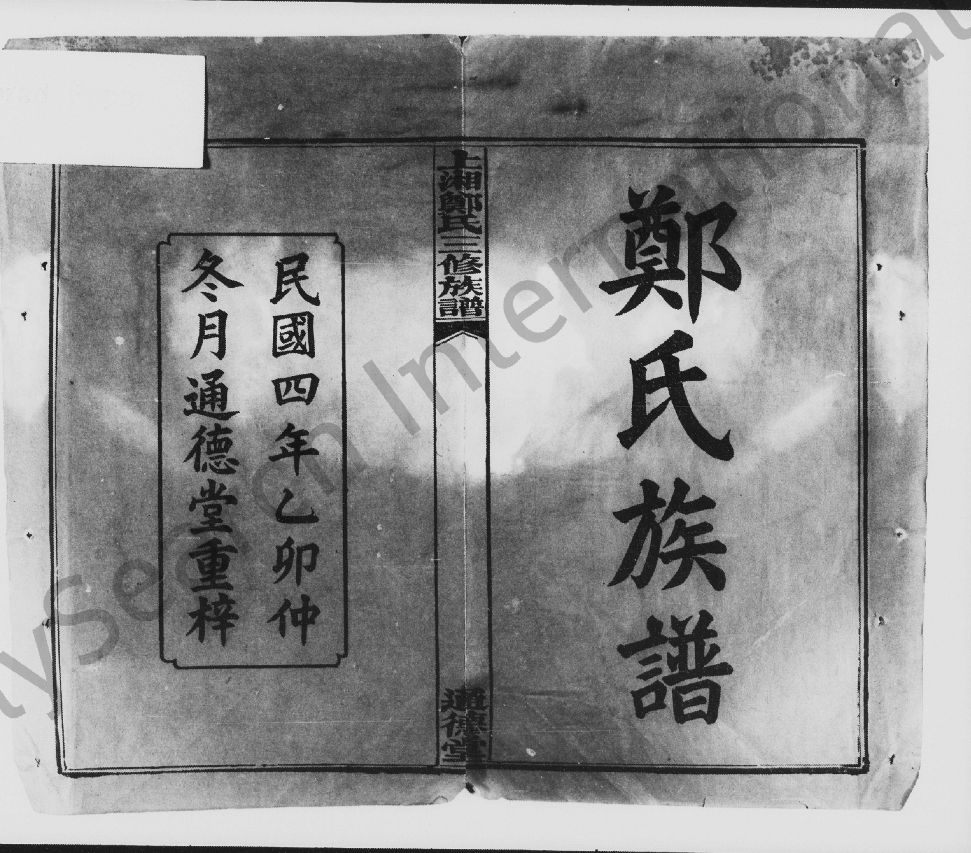 鄭氏族譜
上湘鄭氏三修族譜
通德堂
民國四年乙卯仲
冬月通德堂重梓